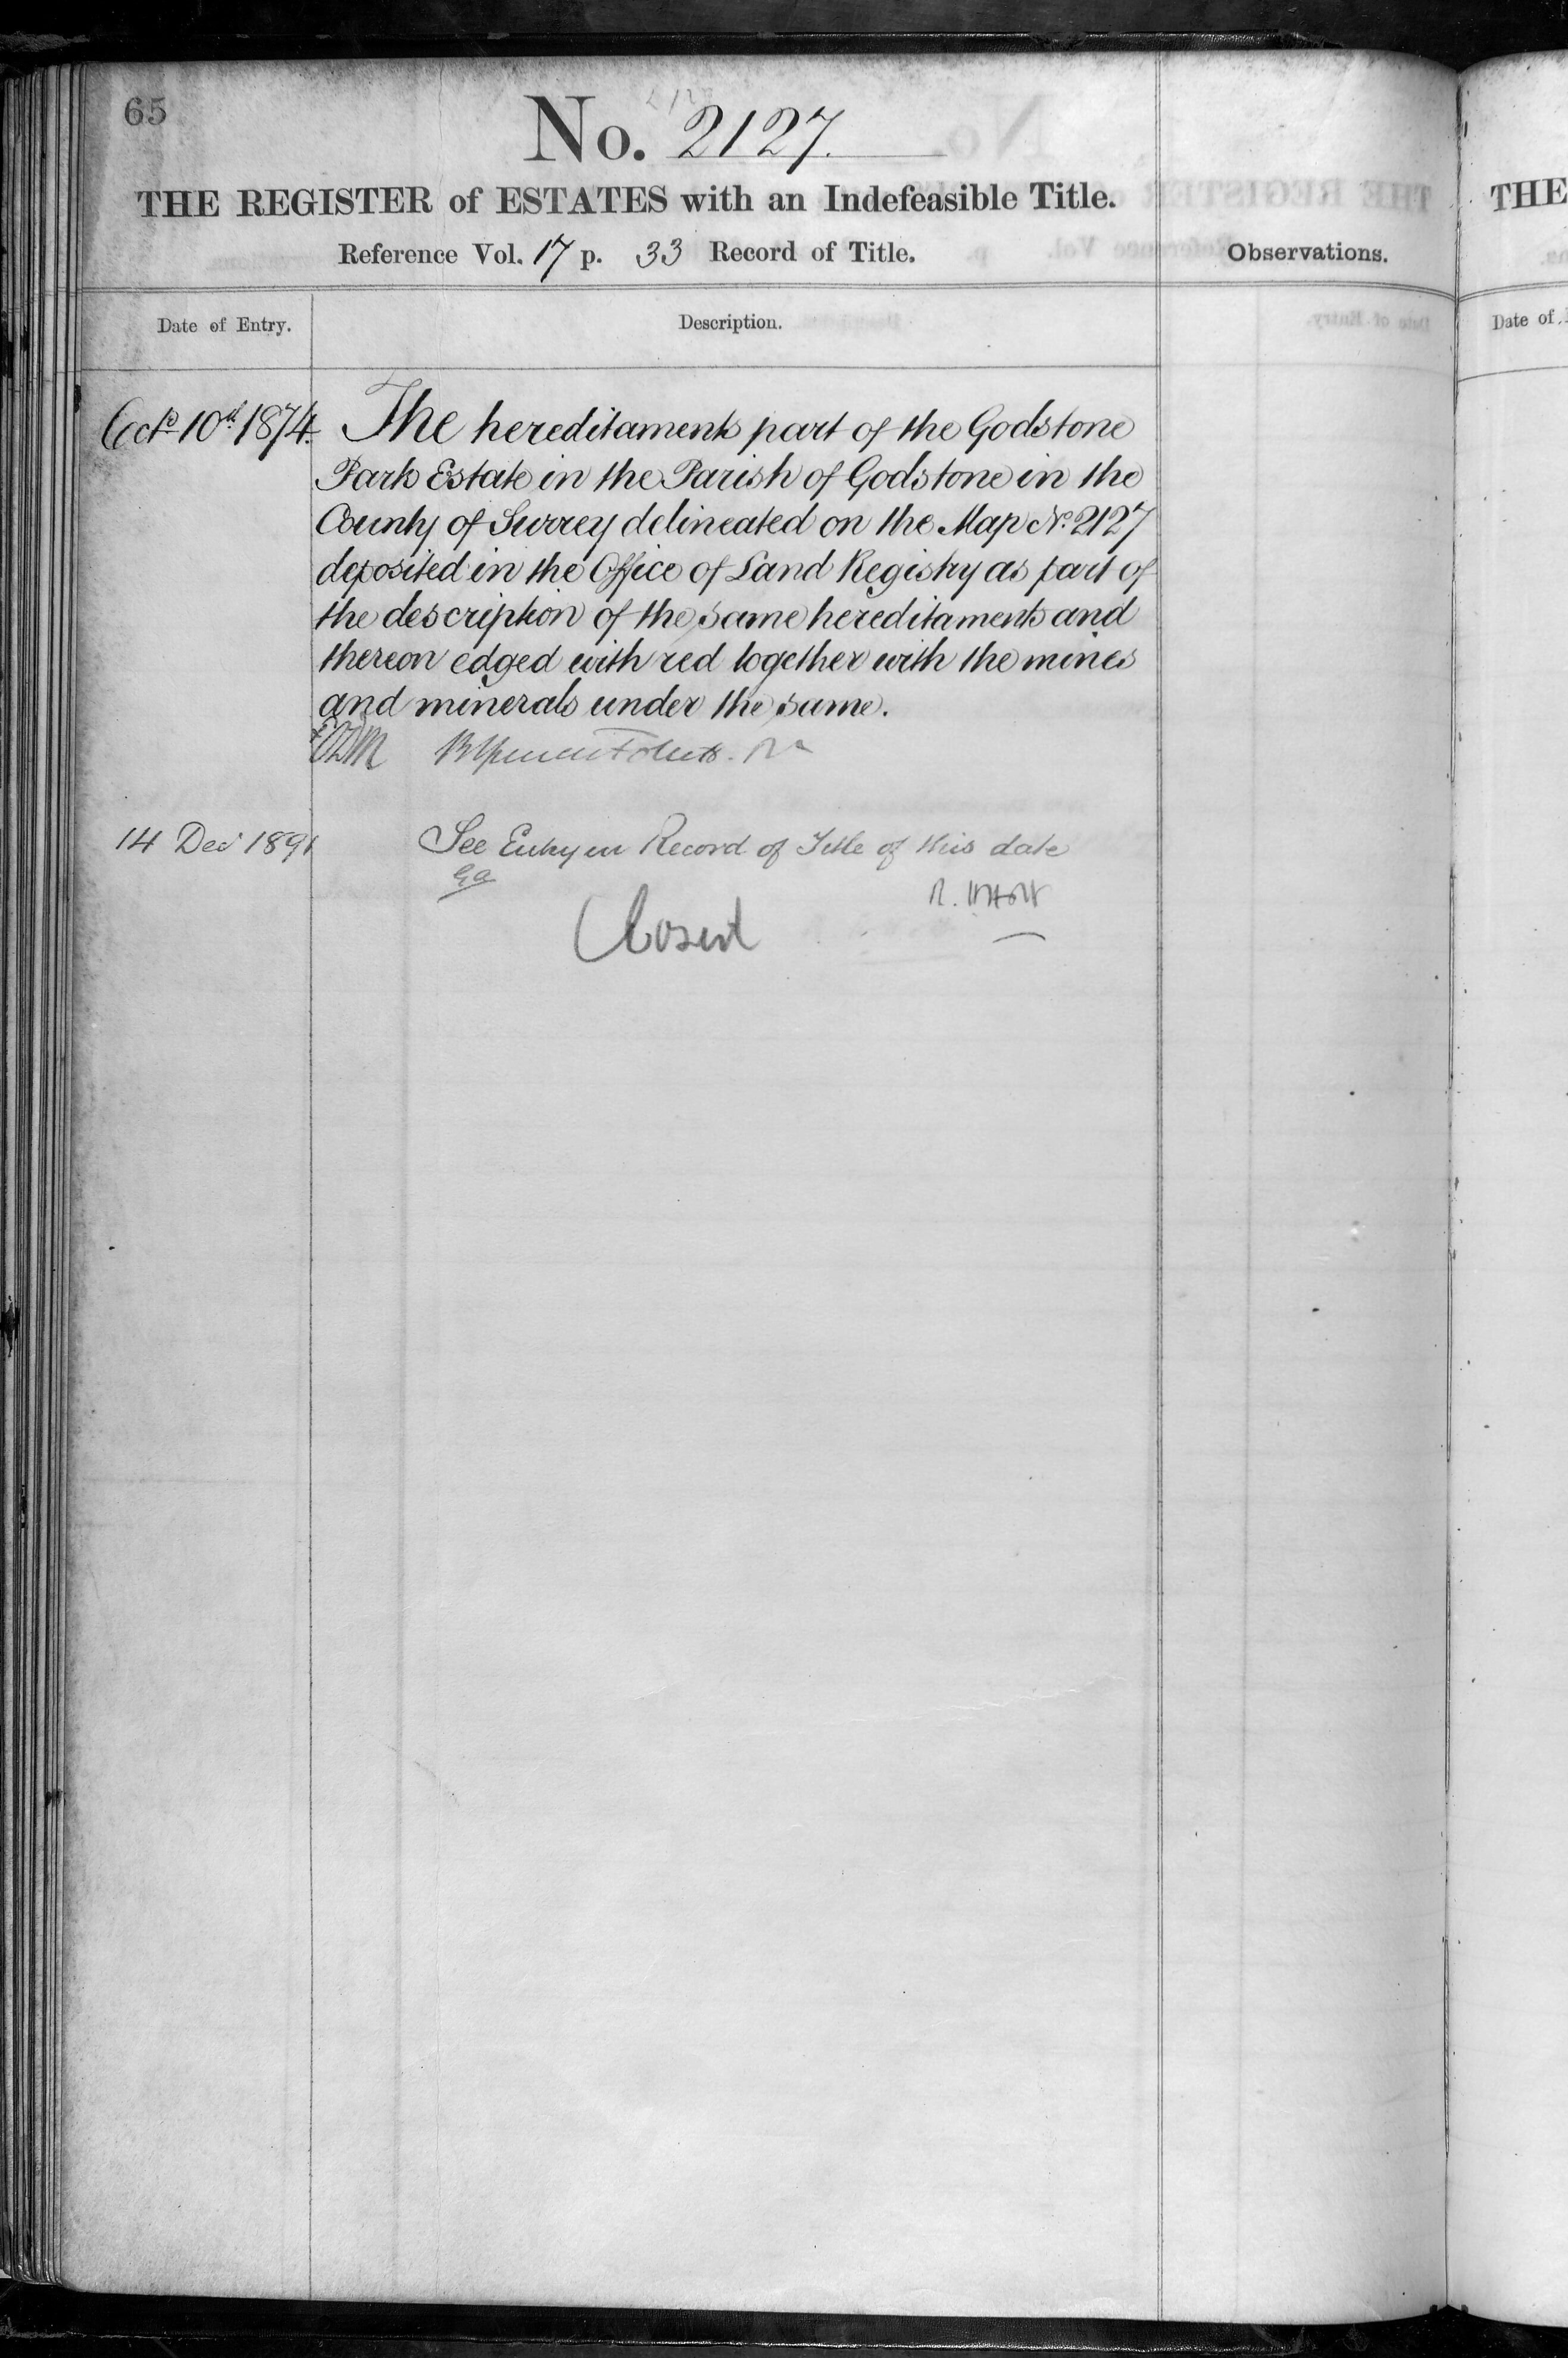 65
No. 2127.
THE REGISTER of ESTATES with an Indefeasible Title.
Reference Vol. 17 p. 33 Record of Title.
Observations.
Date of Entry.
Description.
Octr 10th 1874. The hereditaments part of the Godstone
Park Estate in the Parish of Godstone in the
County of Surrey delineated on the Map No. 2127
deposited in the Office of Land Registry as part of
the description of the same hereditaments and
thereon edged with red together with the mines
and minerals under the same.
14 Decr 1891 See Entry in Record of Title of this date
Closed
THE
Date of